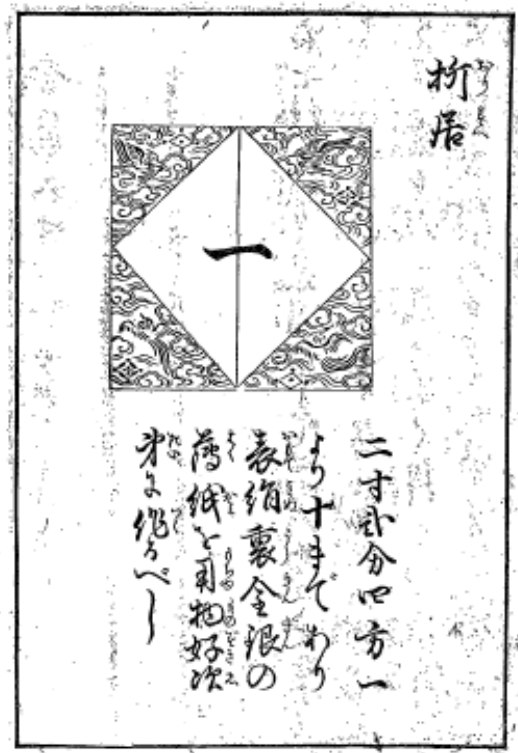 折居
一
二寸弐分四方一
より十まであり
表絹裏金銀の
薄紙を用物好次
第に作るべし